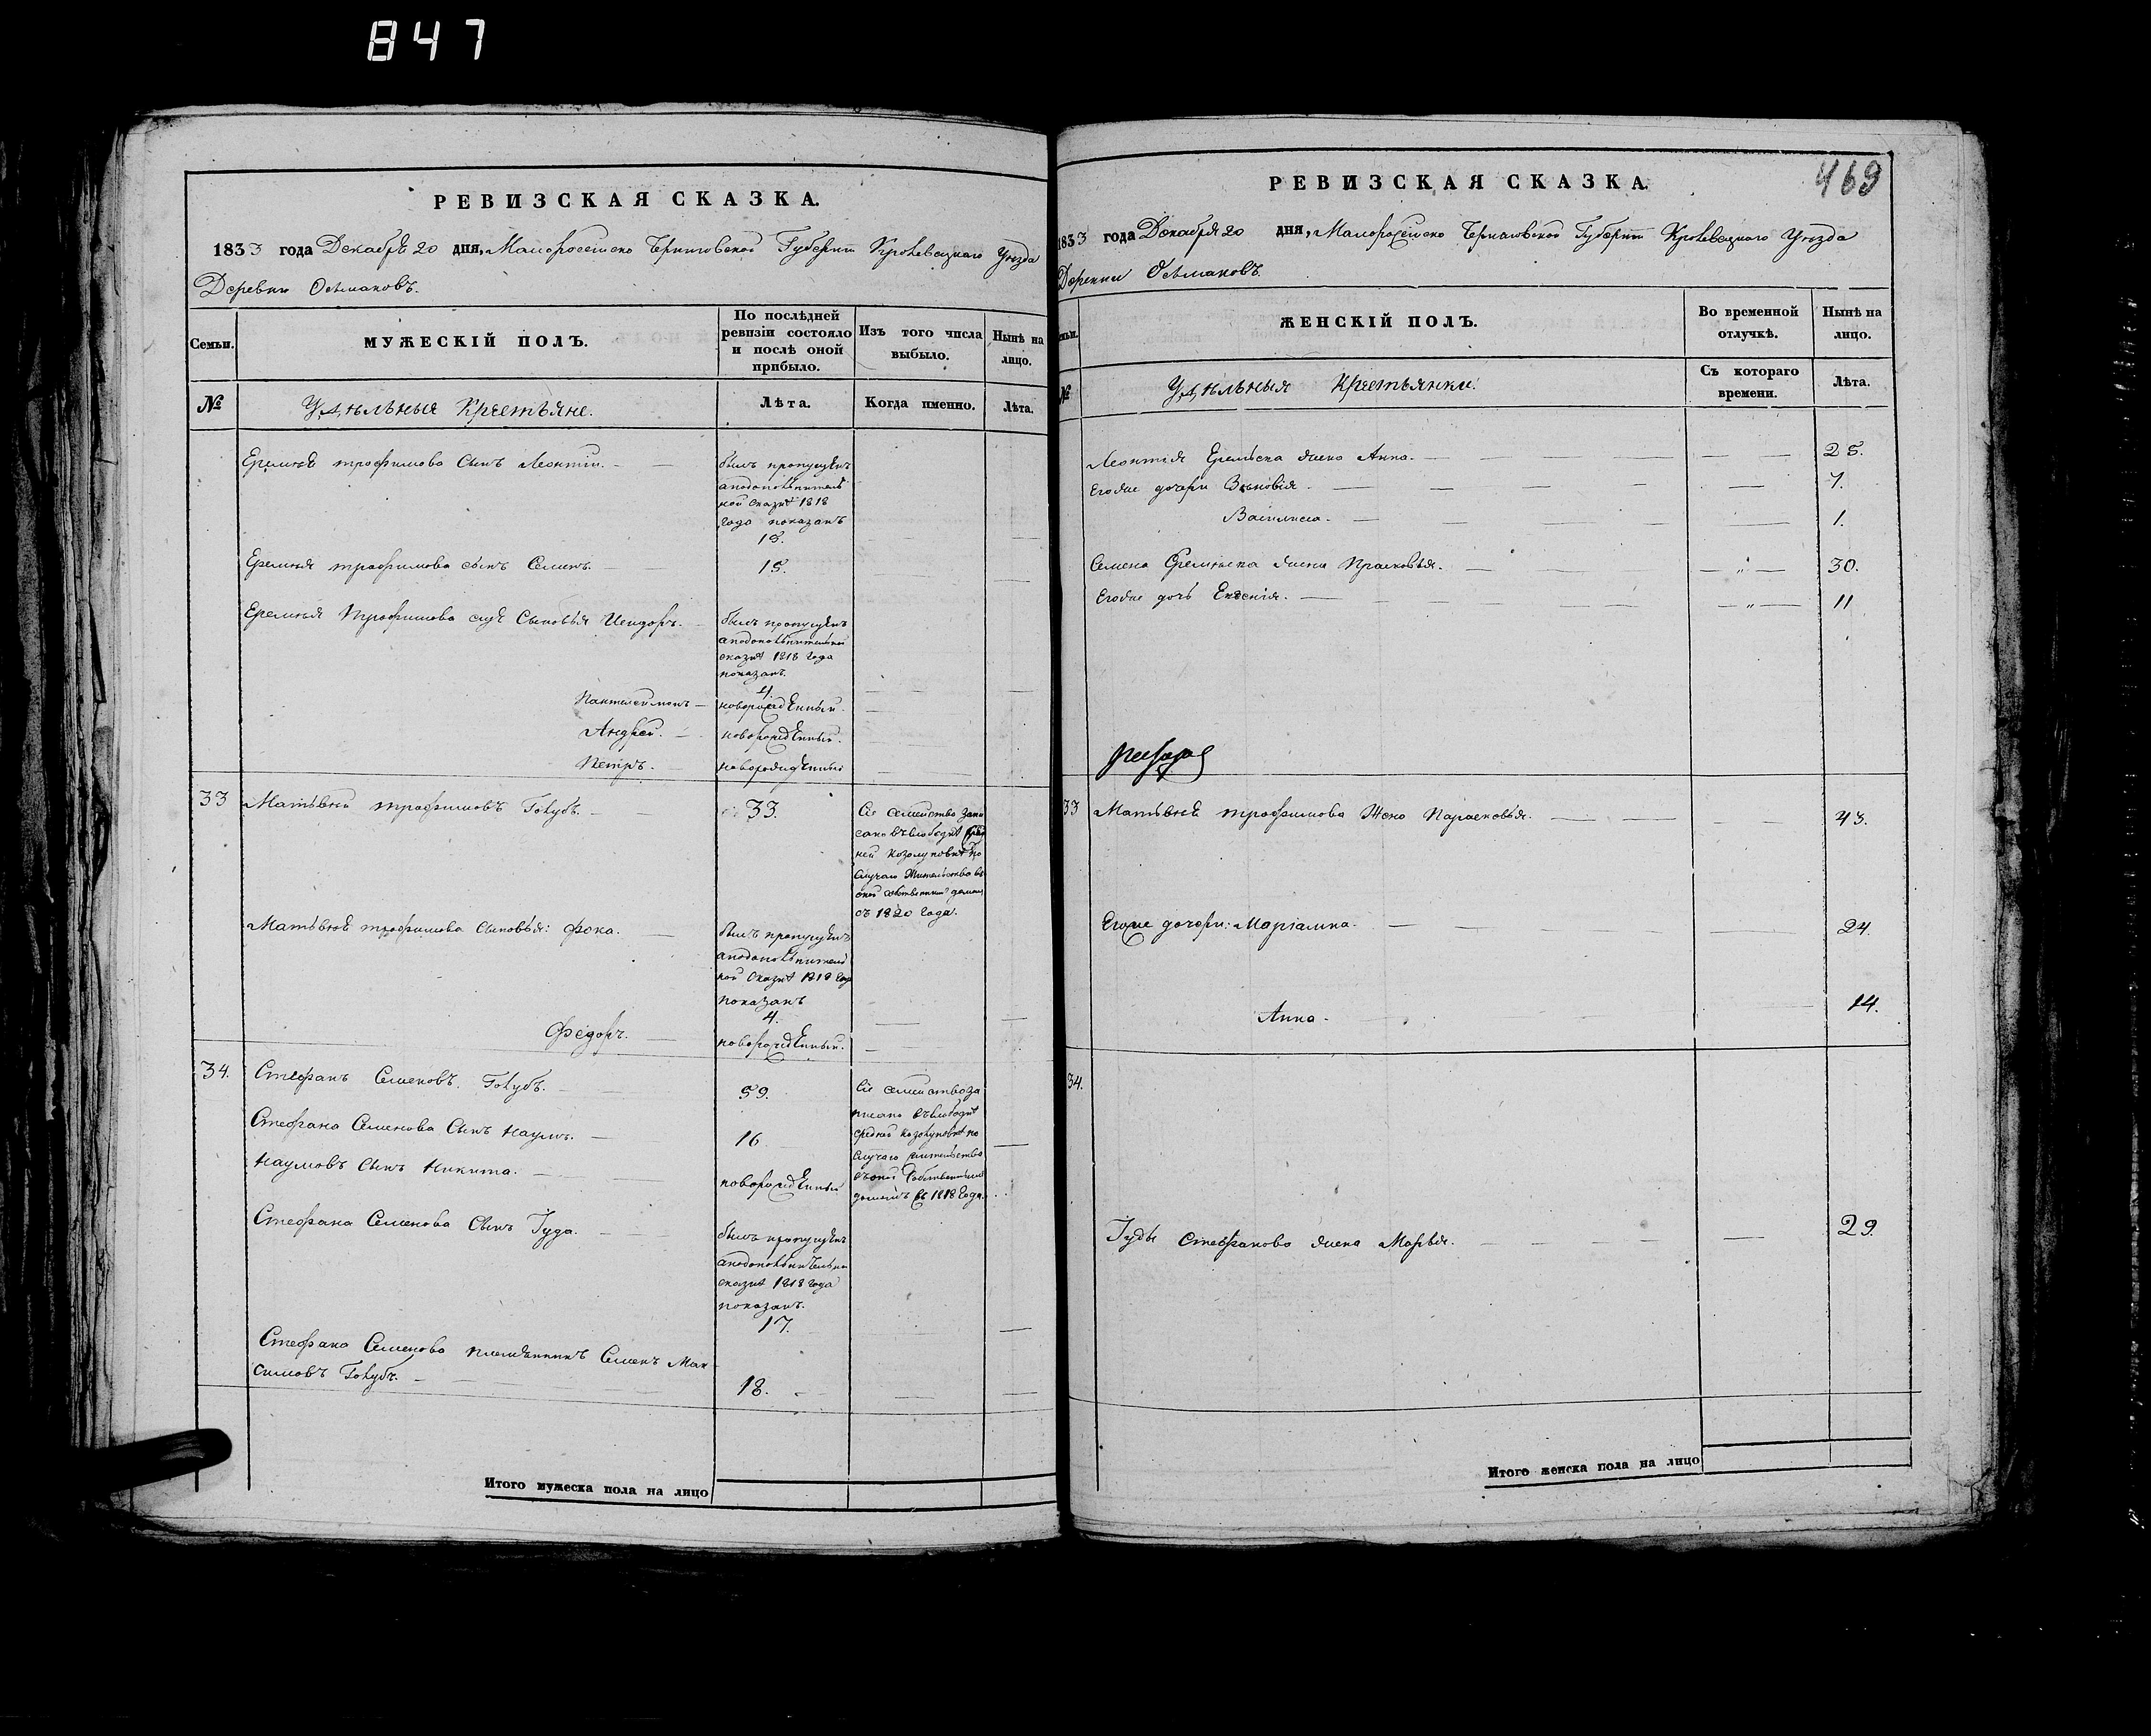 847
РЕВИЗСКАЯ СКАЗКА.
1833 года Декабря 20 дня, Малоросейско Черниговской Губернии Кролевецкаго Уѣзда
Деревни Осьмаковъ.
Семьи.
МУЖЕСКІЙ ПОЛЪ.
По послѣдней
ревизіи состояло
и послѣ оной
прибыло.
Изъ того числа
выбыло.
Нынѣ на
лицо.
№
Удѣльныя Крестьяне.
Лѣта.
Когда именно.
Лѣта.
Еремѣя трофимова Сынъ Леонтій.
былъ пропущенъ
а подополнитель
ной сказкѣ 1818
года показанъ
15.
Еремѣя трофимова сынъ Семенъ.
15.
Еремѣя Трофимова еще Сыновья Исидоръ.
былъ пропущенъ
а подополнительной
сказкѣ 1818 года
показанъ.
4.
Пантелеймонъ
новорожденный.
Андрей.
новорожденный.
Петръ.
новорожденный
33
Матвѣй трофимовъ Голубъ.
33.
Сіе семейство запи
сано въ слободѣ Сред
ней Козолуповкѣ по
случаю Жительства въ
оной собственнымъ домомъ
съ 1820 года.
Матвѣя трофимова сыновья: Фока.
былъ пропущенъ
а подополнитель
ной Сказкѣ 1818 года
показанъ
4.
Федоръ.
новорожденный.
34.
Стефанъ Семеновъ Голубъ.
59.
Сіе семейство за
писано въ слободѣ
средней Козолуповкѣ по
случаю жительства
въ оной Собственнымъ
домомъ съ 1818 года.
Стефана Семенова Сынъ Наумъ.
16
Наумовъ сынъ Никита.
новорожденный
Стефана Семенова Сынъ Іуда.
былъ пропущенъ
а подополнительной
сказкѣ 1818 года
показанъ.
17.
Стефана Семенова племянникъ Семенъ Мак
симовъ Голубъ.
18.
Итого мужеска пола на лицо
469
РЕВИЗСКАЯ СКАЗКА.
1833 года Декабря 20 дня, Малоросейско Черниговской Губерніи Кролевецкаго Уѣзда
Деревни Осьмаковъ.
Семьи.
ЖЕНСКІЙ ПОЛЪ.
Во временной
отлучкѣ.
Нынѣ на
лицо.
№
Удѣльныя Крестьянки.
Съ котораго
времени.
Лѣта.
Леонтія Еремѣева жена Анна.
25.
Егоже дочери Зѣновія.
7.
Василиса.
1.
Семена Еремѣева жена Прасковья.
30.
Егоже дочь Евгенія.
11
33
Матвѣя трофимова Жена Парасковья.
43.
Егоже дочери: Маріамна.
24.
Анна.
14.
34.
Іуды Стефанова жена Марья.
29.
Итого женска пола на лицо